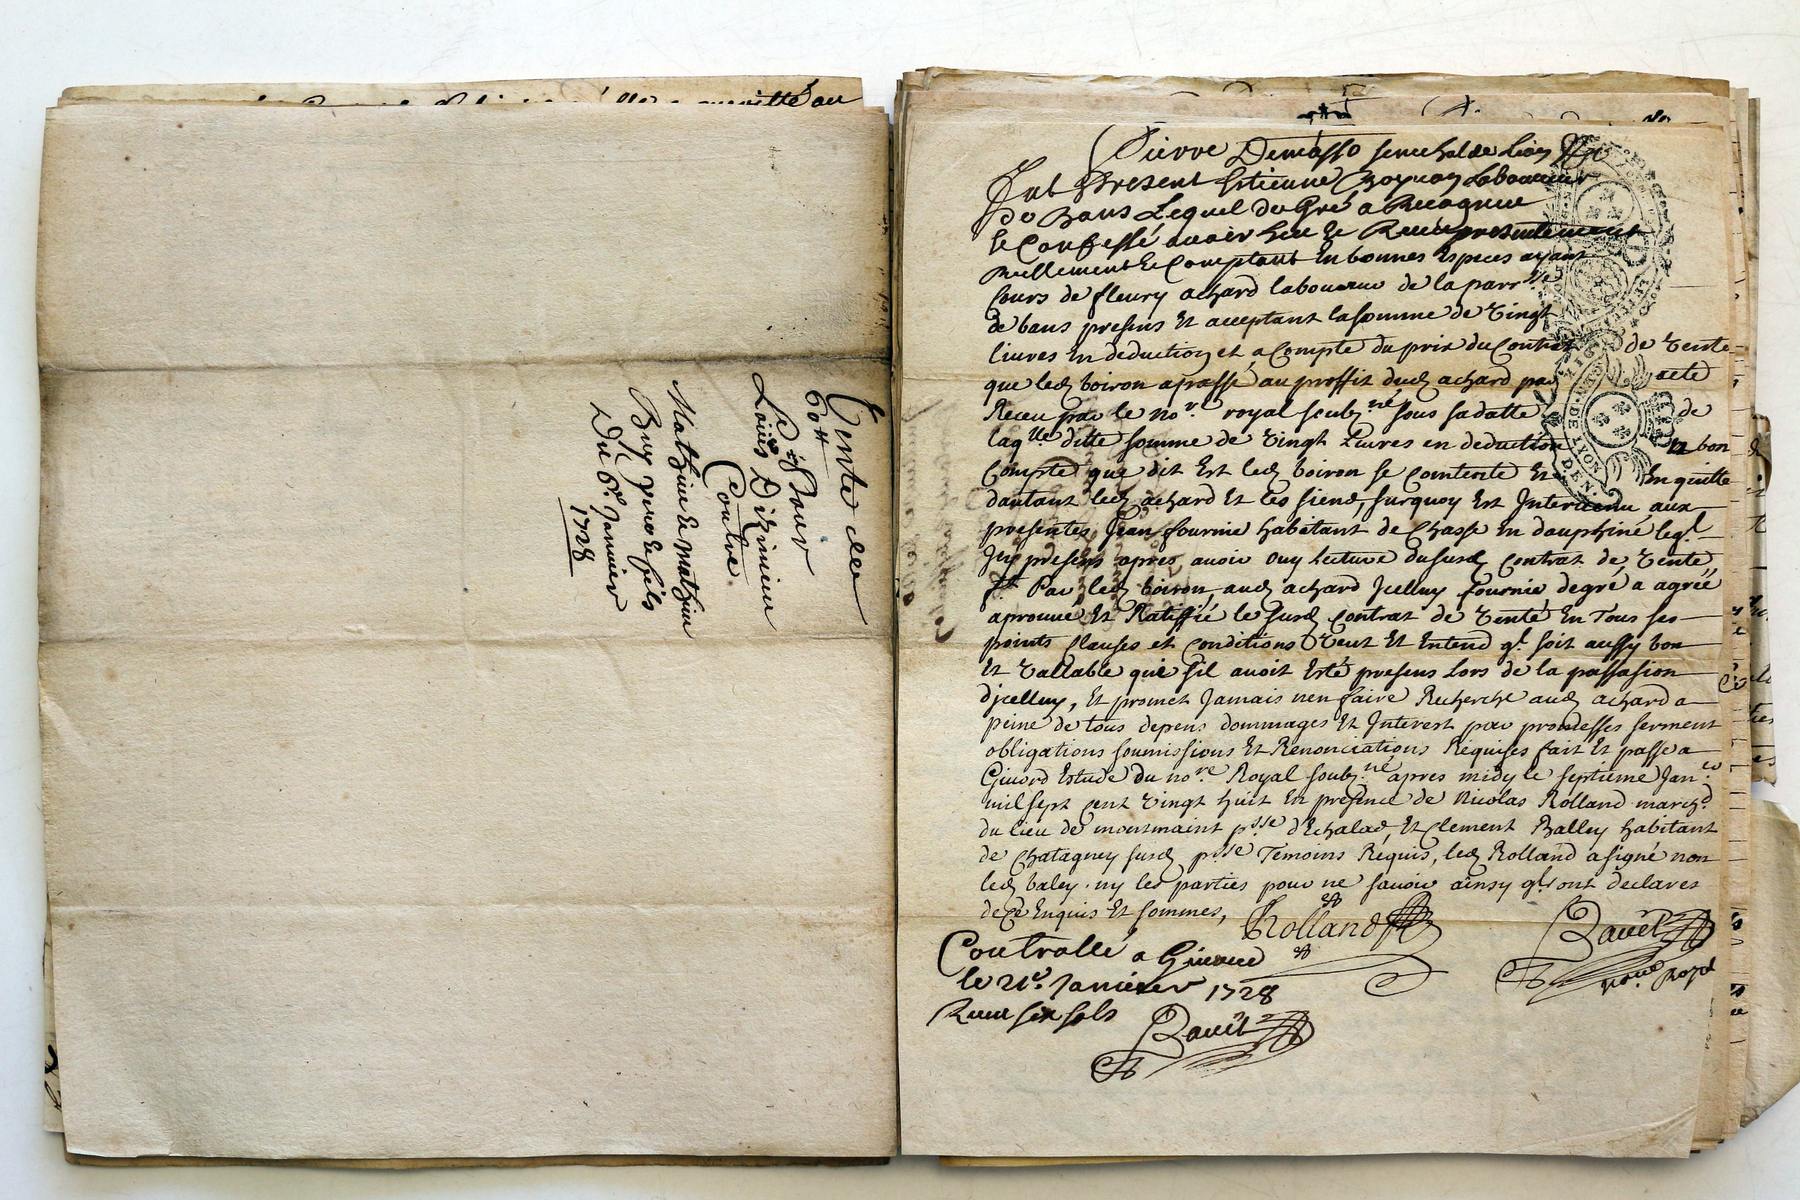 Vente de
60 #
Le Sr Pour
Louis
Contre
Mathieu Et Mathieu
Buy pere Et fils
Du 6e Janvier
1728
Pierre Demasso senechal de Lion
fut Present Estienne Boyron Laboureur
de Bans Lequel de Gré a Recogneu
Et Confessé avoir heu Et Receu presentement
Reellement Et Comptant En bonnes Especes ayant
Cours de fleury achard laboureur de la parr.sse
de bans present Et acceptant la somme de Vingt
livres En deduction et a Compte du prix du Contrat de Vente
que led boiron a passé au proffit dud achard par acte
Receu par le no.re royal soubz.né sous sa datte de
laq.lle ditte somme de Vingt Livres en deduction Et bon
Compte que dit Est led boiron se Contente Et En quitte
dautant led achard Et les siens, surquoy Est Intervenu aux
presentes Jean fournie habitant de Chasse En dauphiné leq.l
Icy present apres avoir ouy Lecture dususd Contrat de Vente
Par led boiron aud achard Jcelluy fournie degré a agréé
aprouvé Et Ratiffié le susd Contrat de Vente En Tous ses
points Clauses et Conditions Veut Et Entend q.l soit aussy bon
Et Vallable que sil avoit Esté present Lors de la passasion
djcelluy, Et promet Jamais nen faire Recherche aud achard a
peine de tous depens dommages Et Interest par promesses serment
obligations soumissions Et Renonciations Requises fait Et passé a
Givord Estude du no.re Royal soubz.né apres midy le septieme Jan.er
mil sept Cent Vingt huit En presence de Nicolas Rolland march.d
du lieu de montmaint p.sse d'Echalas, Et Clement Balley habitant
de Chatagney susd p.sse Temoins Requis, led Rolland a signé non
led baley ny les parties pour ne savoir ainsy q.lz ont declares
de ce Enquis Et sommes, Rolland
Bavet
no.re Royal
Controllé a Givord
le 21e. Janvier 1728
Receu six sols
Bavet
LYON